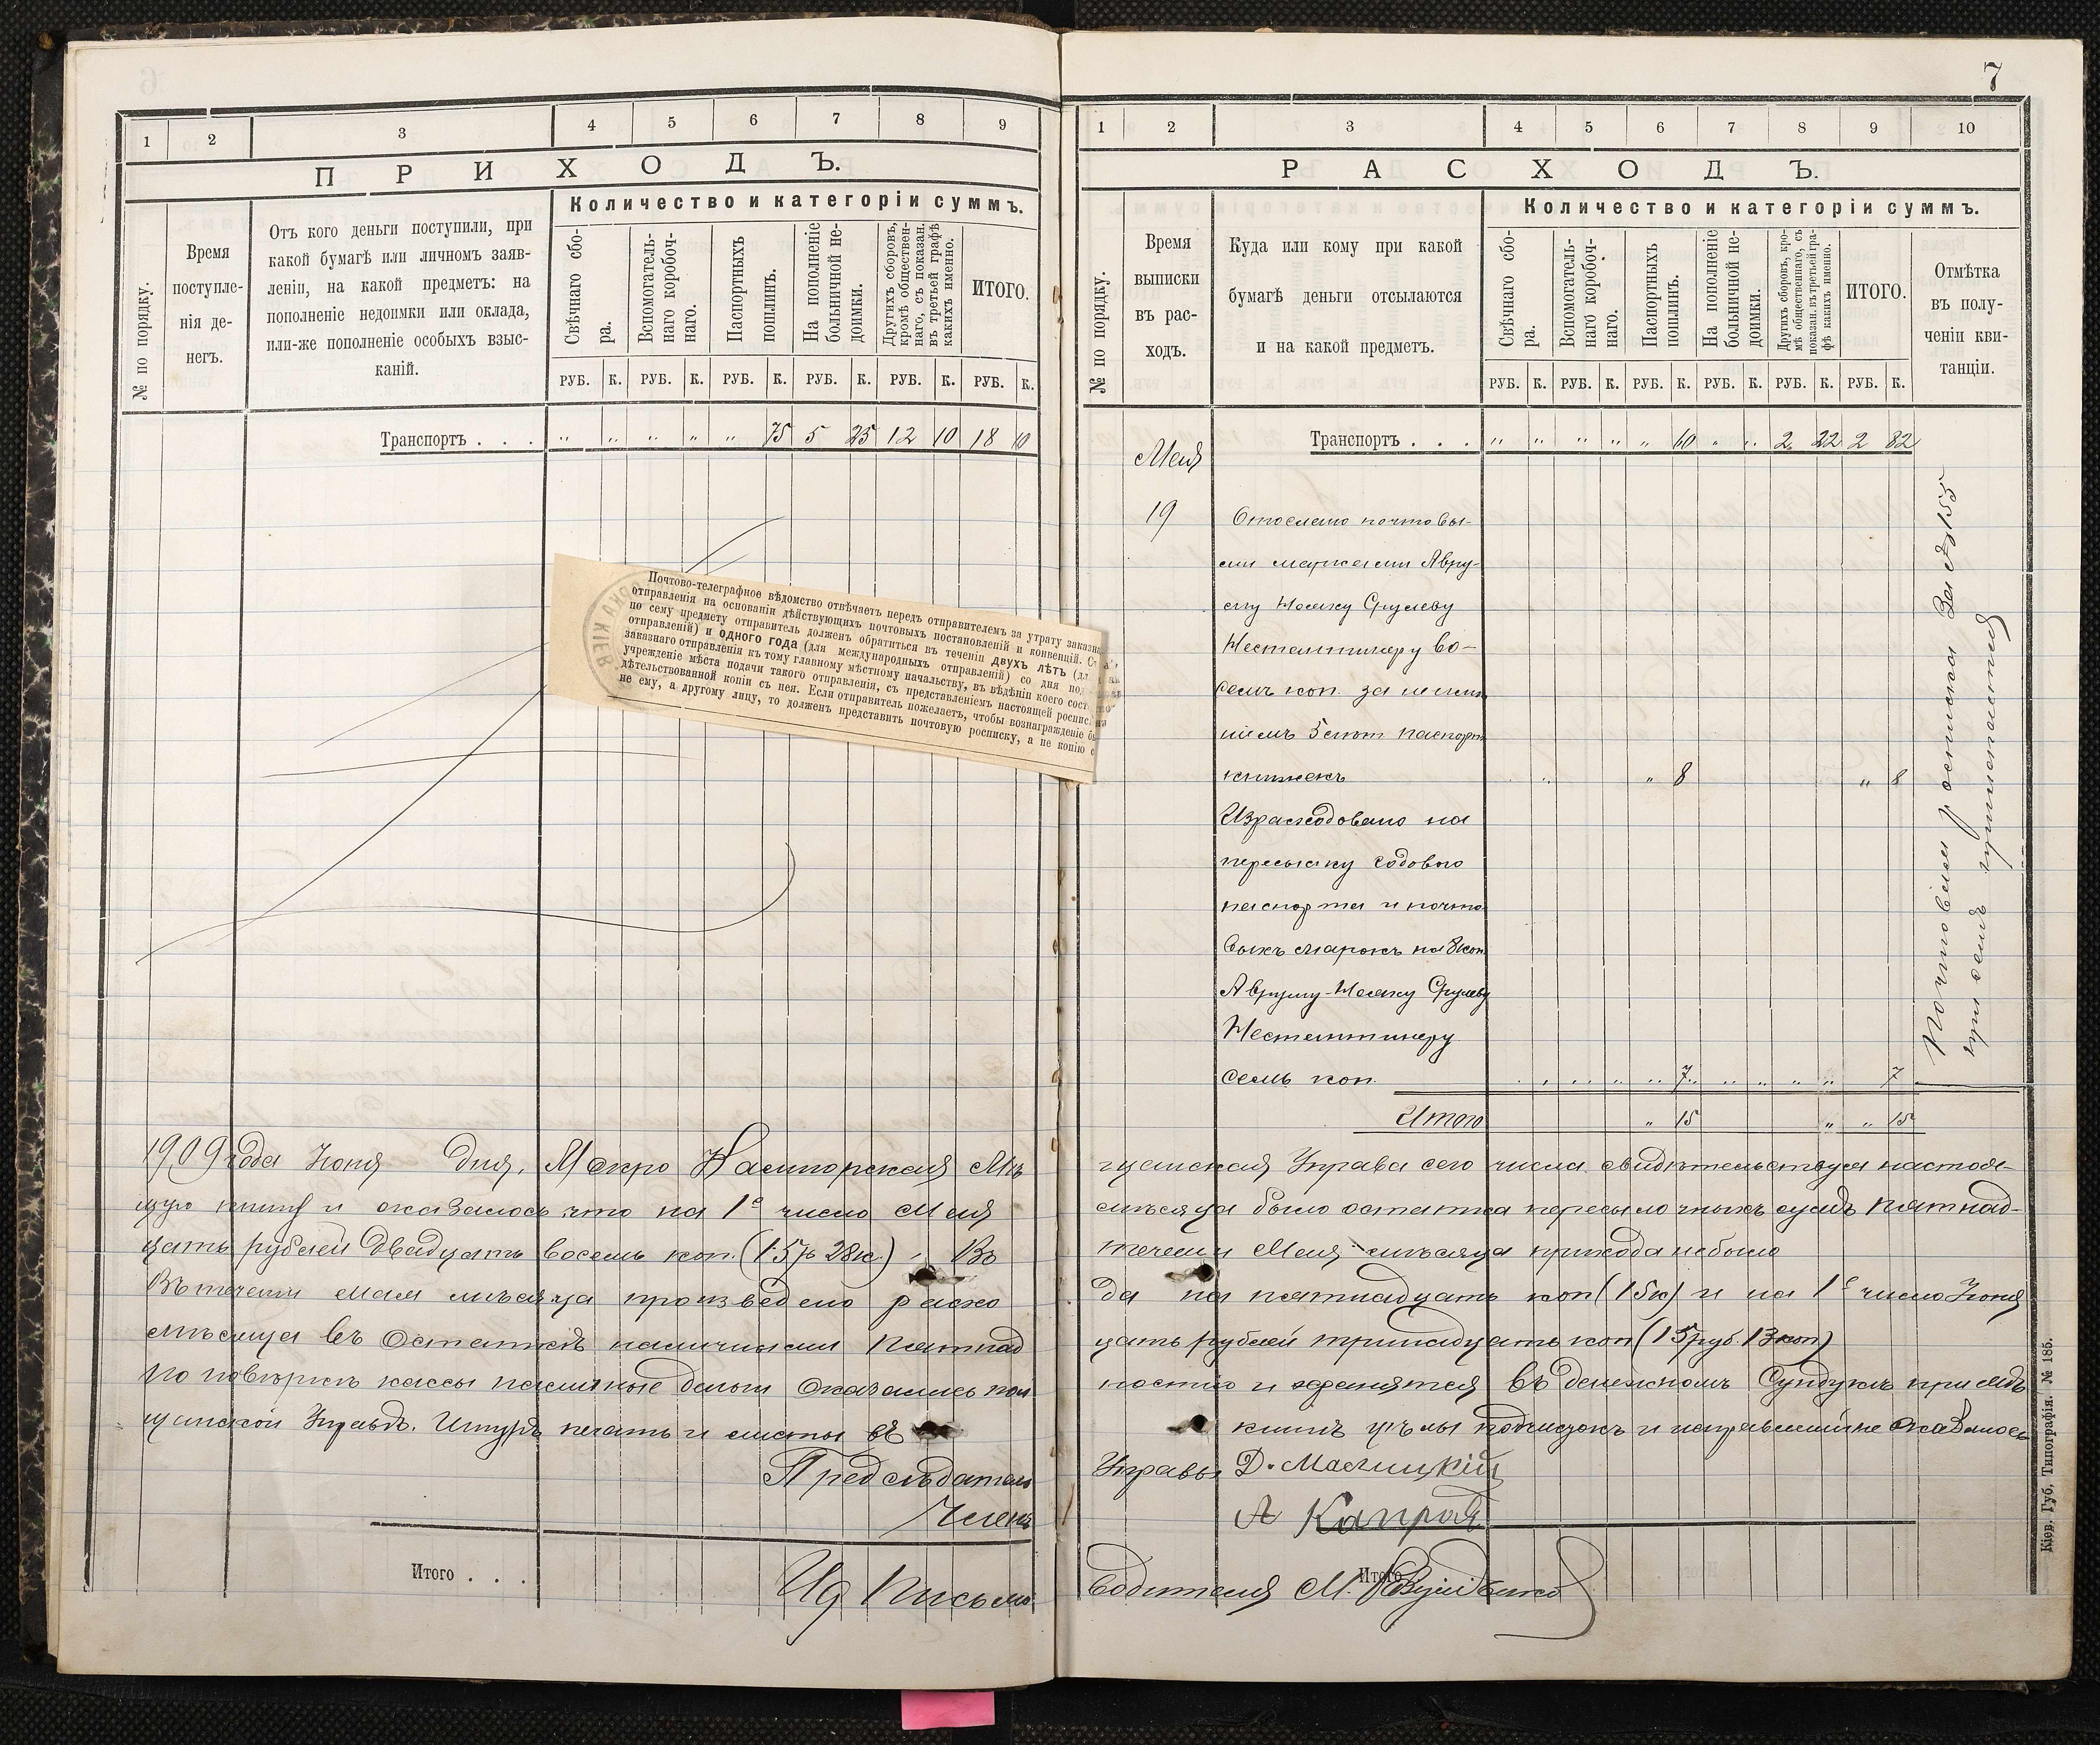 1 2 3 4 5 6 7 8 9
ПРИХОДЪ.
№ по порядку.
Время поступле-
нія де-
негъ.
Отъ кого деньги поступили, при
какой бумагѣ или личномъ заяв-
леніи, на какой предметъ: на
пополненіе недоимки или оклада,
или-же пополненіе особыхъ взыс-
каній.
Количество и категоріи суммъ.
Свѣчнаго сбо-
ра.
Вспомогатель-
наго коробоч-
наго.
Паспортныхъ
пошлинъ.
На пополненіе
больничной не-
доимки.
Другихъ сборовъ,
кромѣ обществен-
наго, съ показан.
въ третьей графѣ
какихъ именно.
ИТОГО.
РУБ. К. РУБ. К. РУБ. К. РУБ. К. РУБ. К. РУБ. К.
Транспортъ . . . „ „ „ „ „ 75 5 25 12 10 18 10
Почтово-телеграфное вѣдомство отвѣчаетъ передъ отправителемъ за утрату заказна
отправленія на основаніи дѣйствующихъ почтовыхъ постановленій и конвенцій. С
по сему предмету отправитель долженъ обратиться въ теченіи двухъ лѣтъ (дл
отправленій) и одного года (для международныхъ отправленій) со дня под
заказнаго отправленія къ тому главному мѣстному начальству, въ вѣдѣніи коего сост
учрежденіе мѣста подачи такого отправленія, съ представленіемъ настоящей роспис
дѣтельствованной копіи съ нея. Если отправитель пожелаетъ, чтобы вознагражденіе б
не ему, а другому лицу, то долженъ представить почтовую росписку, а не копію с
7
1 2 3 4 5 6 7 8 9 10
РАСХОДЪ.
№ по порядку.
Время
выписки
въ рас-
ходъ.
Куда или кому при какой
бумагѣ деньги отсылаются
и на какой предметъ.
Количество и категоріи суммъ.
Свѣчнаго сбо-
ра.
Вспомогатель-
наго коробоч-
наго.
Паспортныхъ
пошлинъ.
На пополненіе
больничной не-
доимки.
Другихъ сборовъ, кро-
мѣ общественнаго, съ
показан. въ третьей гра-
фѣ какихъ именно.
ИТОГО.
Отмѣтка
въ полу-
ченіи кви-
танціи.
РУБ. К. РУБ. К. РУБ. К. РУБ. К. РУБ. К. РУБ. К.
Транспортъ . . . „ „ „ „ „ 60 „ „ 2 22 2 82
Мая
19 Отослано почтовы-
ми марками Авру-
му Ицеку Сруеву
Нестентинеру во-
семь коп. за
паспорт
книжекъ „ 8 „ 8
Израсходовано на
пересылку годового
паспорта и почто
выхъ марокъ на 8 коп
Авруму-Ицеку Сруеву
Нестентинеру
семь коп. 7 7
Итого „ 15 „ „ 15
Почтовая росписка за № 155
при семъ прилагается
1909 года Іюня дня. Мокро Калигорская Мѣ
щанская Управа сего числа свидѣтельствуя настоя-
щую книгу и оказалось что на 1е число Мая
мѣсяца было остатка пересылочныхъ суммъ пятнад-
цать рублей двадцать восемь коп. (15 р 28 к.). Въ
теченіи Мая мѣсяца прихода небыло
Въ теченіи мая мѣсяца произведено расхо
да на пятнадцать коп (15 к) и на 1е число Іюня
мѣсяца въ остаткѣ наличными пятнад
цать рублей тринадцать коп (15 руб. 13 коп)
По повѣркѣ кассы наличные деньги оказались пол
ностію и хранятся въ денежномъ сундукѣ при Мѣ
щанской Управѣ. Шнуръ печать и листы въ
книгѣ цѣлы подчистокъ и исправленій не оказалось
Предсѣдатель Управы Д. Маслицкій
Членъ А
Ид Письмо
водителя М.
Итого . . .
Итого
Кіев. Губ. Типографія. № 185.